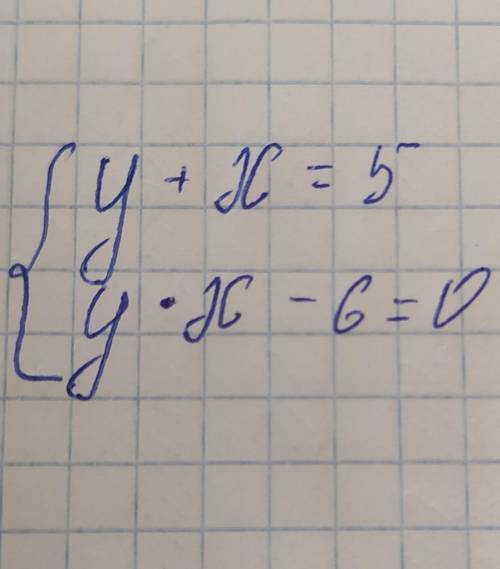 y + x = 5
y · x - 6 = 0